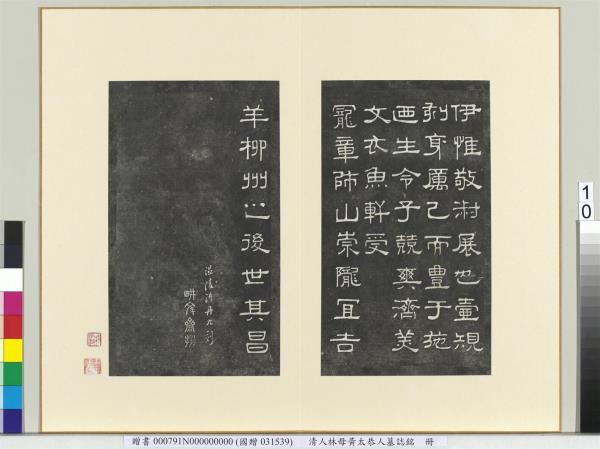 伊惟敬淑展也壼規
身厲己而豊于施
迺生令子競爽濟美
文衣魚軒受
寵章師山崇隴宜吉
羊柳州之後世其昌
贈書 000791N000000000 (國贈 031539) 清人林母黃太恭人墓誌銘 冊
10